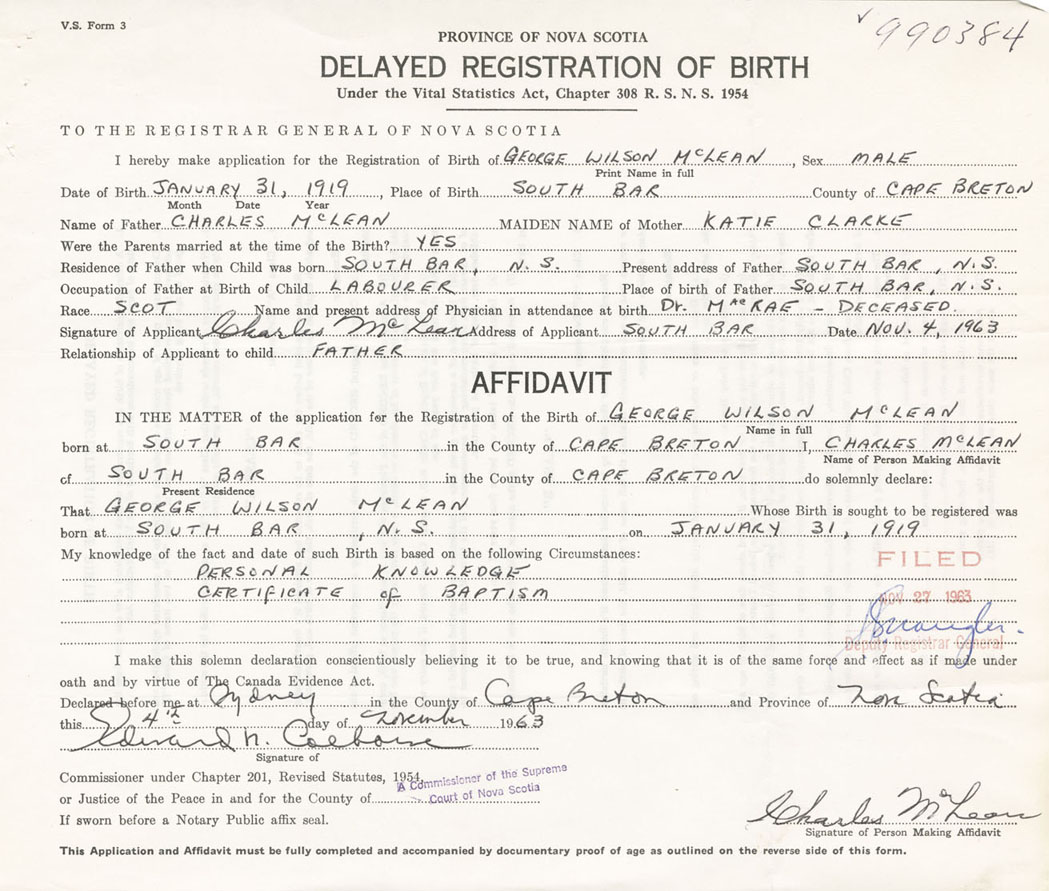 V.S. Form 3
990384
PROVINCE OF NOVA SCOTIA
DELAYED REGISTRATION OF BIRTH
Under the Vital Statistics Act, Chapter 308 R. S. N. S. 1954
TO THE REGISTRAR GENERAL OF NOVA SCOTIA
I hereby make application for the Registration of Birth of GEORGE WILSON McLEAN, Sex MALE
Print Name in full
Date of Birth JANUARY 31, 1919, Place of Birth SOUTH BAR County of CAPE BRETON
Month Date Year
Name of Father CHARLES McLEAN MAIDEN NAME of Mother KATIE CLARKE
Were the Parents married at the time of the Birth? YES
Residence of Father when Child was born SOUTH BAR, N.S. Present address of Father SOUTH BAR, N.S.
Occupation of Father at Birth of Child LABOURER Place of birth of Father SOUTH BAR, N.S.
Race SCOT Name and present address of Physician in attendance at birth Dr. MacRAE - DECEASED.
Signature of Applicant Charles McLean Address of Applicant SOUTH BAR Date NOV. 4, 1963
Relationship of Applicant to child FATHER
AFFIDAVIT
IN THE MATTER of the application for the Registration of the Birth of GEORGE WILSON McLEAN
Name in full
born at SOUTH BAR in the County of CAPE BRETON I, CHARLES McLEAN
Name of Person Making Affidavit
of SOUTH BAR in the County of CAPE BRETON do solemnly declare:
Present Residence
That GEORGE WILSON McLEAN Whose Birth is sought to be registered was
born at SOUTH BAR, N.S. on JANUARY 31, 1919
My knowledge of the fact and date of such Birth is based on the following Circumstances:
FILED
PERSONAL KNOWLEDGE
CERTIFICATE of BAPTISM
NOV 27 1963
Deputy Registrar General
I make this solemn declaration conscientiously believing it to be true, and knowing that it is of the same force and effect as if made under
oath and by virtue of The Canada Evidence Act.
Declared before me at Sydney in the County of Cape Breton and Province of Nova Scotia
this 4th day of November 1963
Edward N.
Signature of
Commissioner under Chapter 201, Revised Statutes, 1954,
A Commissioner of the Supreme
Court of Nova Scotia
or Justice of the Peace in and for the County of
If sworn before a Notary Public affix seal.
Charles McLean
Signature of Person Making Affidavit
This Application and Affidavit must be fully completed and accompanied by documentary proof of age as outlined on the reverse side of this form.